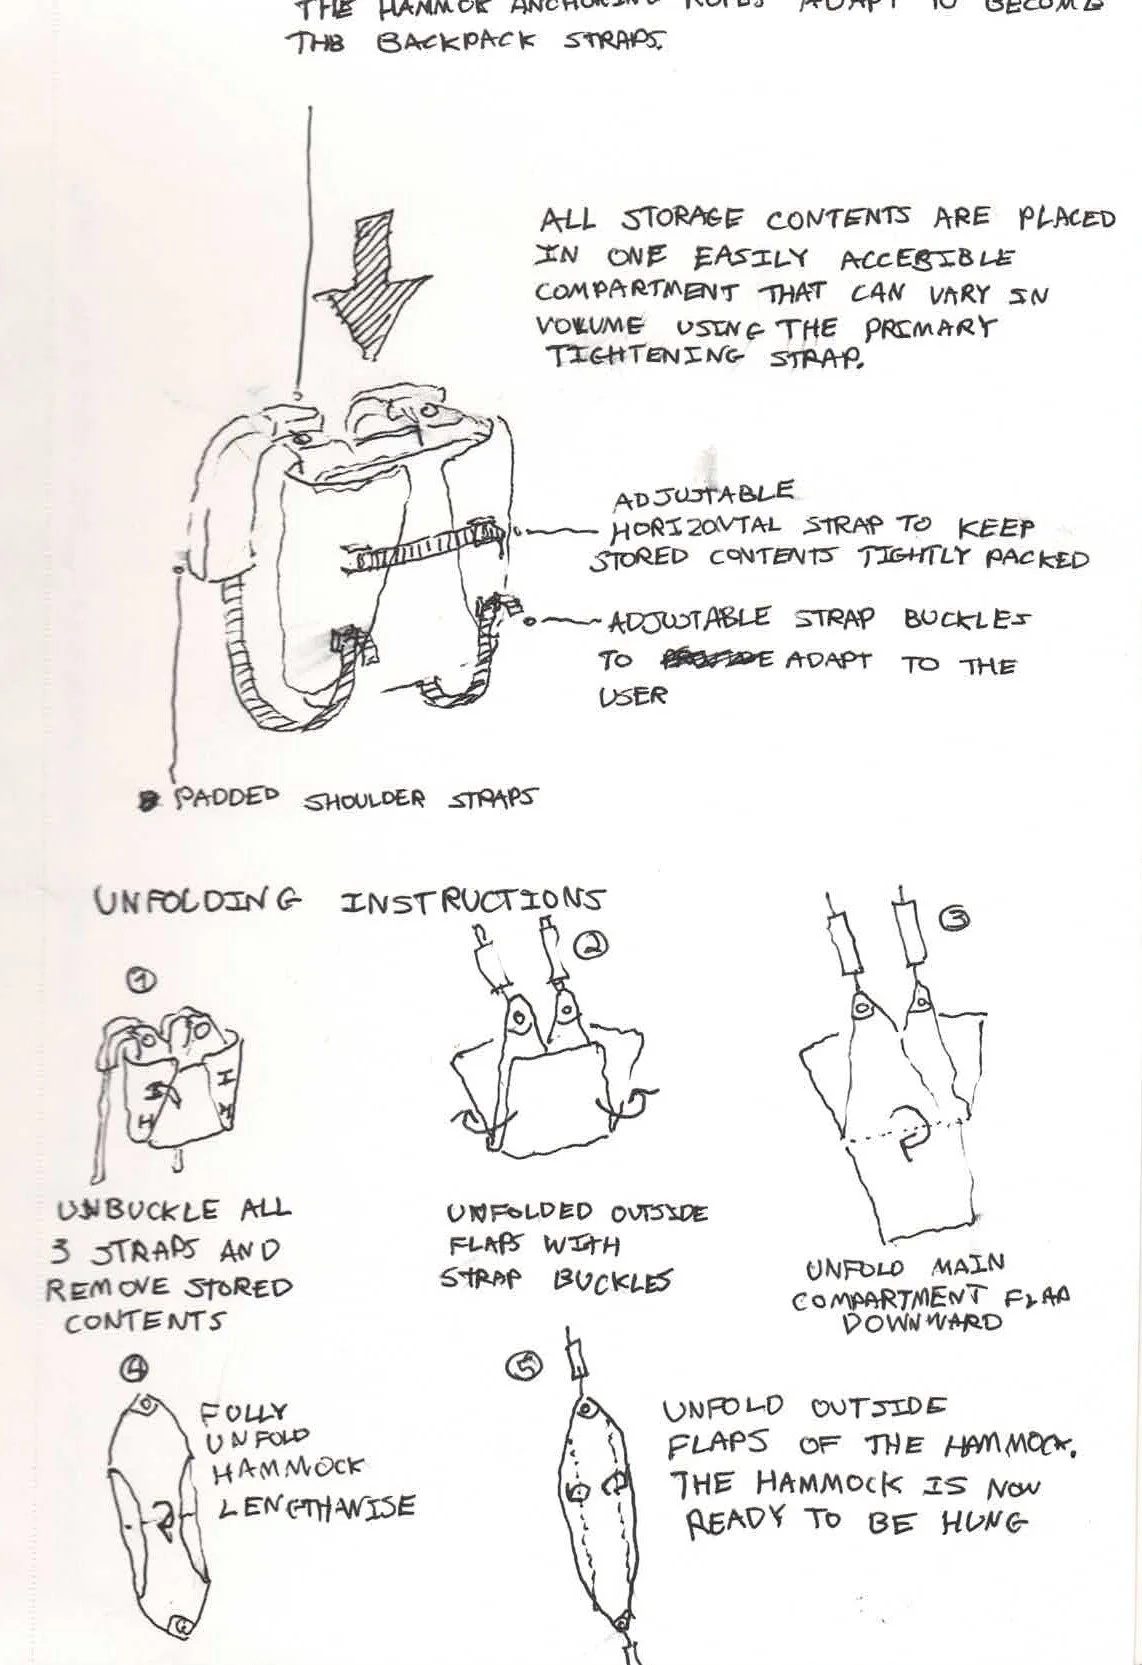 THE HAMMOK ANCHORING ROPES ADAPT TO BECOME
THB BACKPACK STRAPS.
ALL STORAGE CONTENTS ARE PLACED
IN ONE EASILY ACCESIBLE
COMPARTMENT THAT CAN VARY IN
VOLUME USING THE PRIMARY
TIGHTENING STRAP.
ADJUSTABLE
HORIZONTAL STRAP TO KEEP
STORED CONTENTS TIGHTLY PACKED
ADJUSTABLE STRAP BUCKLES
TO ADAPT TO THE
USER
PADDED SHOULDER STRAPS
UNFOLDING INSTRUCTIONS
1
UNBUCKLE ALL
3 STRAPS AND
REMOVE STORED
CONTENTS
2
UNFOLDED OUTSIDE
FLAPS WITH
STRAP BUCKLES
3
UNFOLD MAIN
COMPARTMENT FLAP
DOWNWARD
4
FULLY
UNFOLD
HAMMOCK
LENGTHWISE
5
UNFOLD OUTSIDE
FLAPS OF THE HAMMOCK.
THE HAMMOCK IS NOW
READY TO BE HUNG